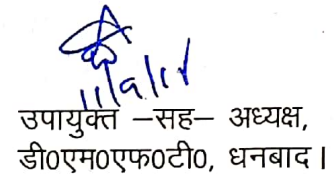 उपायुक्त –सह– अध्यक्ष,
डी0एम0एफ0टी0, धनबाद।